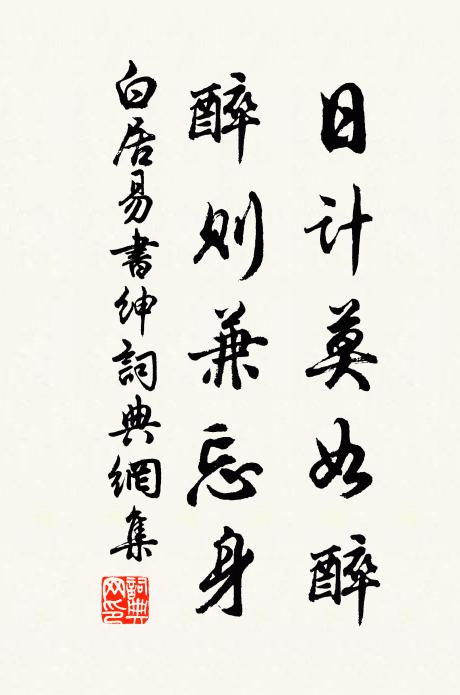 日計莫如醉
醉則兼忘身
白居易書紳詞典網集
詞典
网印